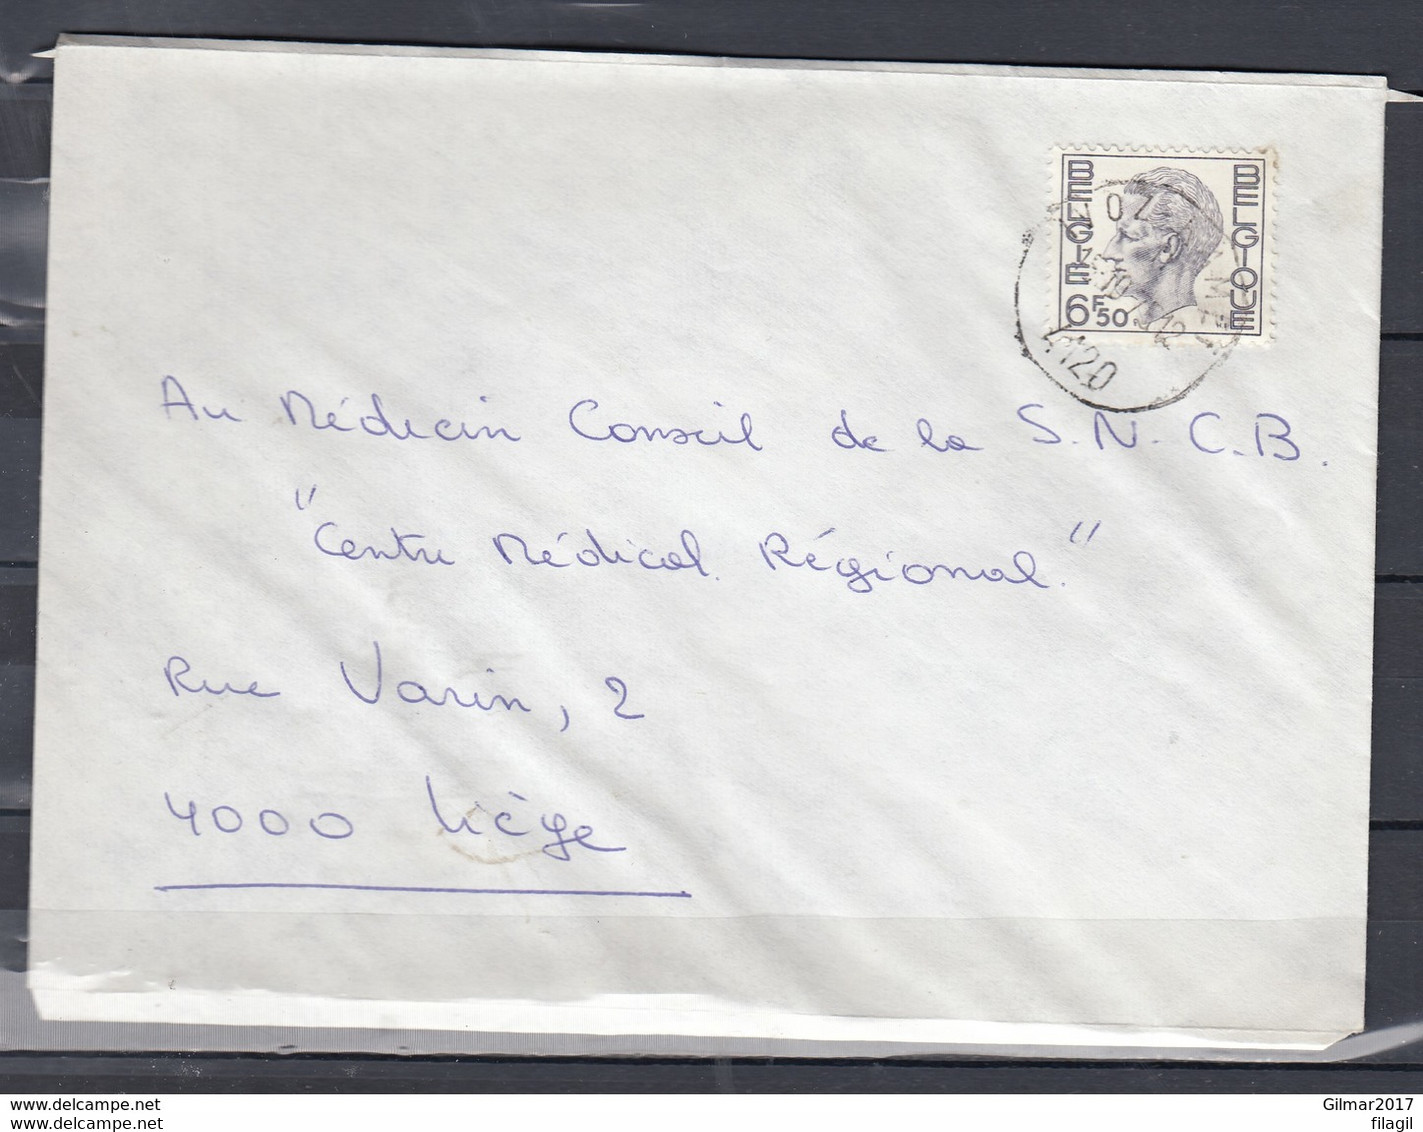 BELGIE
BELGIQUE
6F50
4120
Au Médecin Conseil de la S.N.C.B.
"Centre Médical Régional."
Rue Varin, 2
4000 Liège
www.delcampe.net
www.delcampe.net
Gilmar2017
filagil